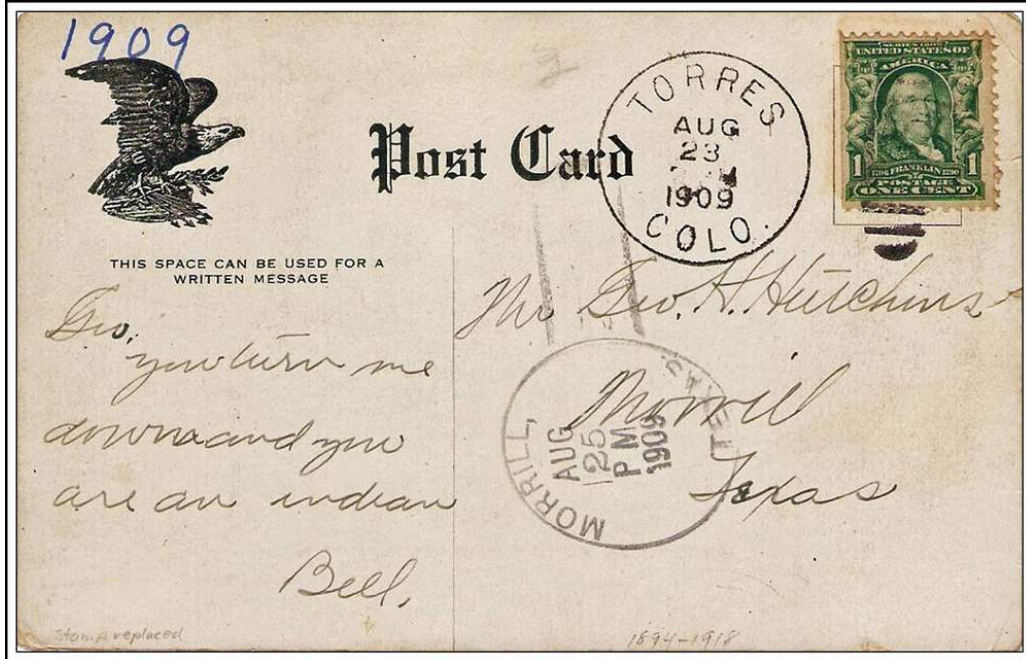 1909
Post Card
TORRES
AUG
23
1909
COLO.
SERIES 1902
UNITED STATES OF
AMERICA
1 FRANKLIN 1
POSTAGE
ONE CENT
THIS SPACE CAN BE USED FOR A
WRITTEN MESSAGE
Geo,
you turn me
down and you
are an indian
Bell,
Mr Geo. H. Hutchins
Morrill
Texas
MORRILL,
AUG
25
P M
1909
TEXAS.
Stamp replaced
1894-1918